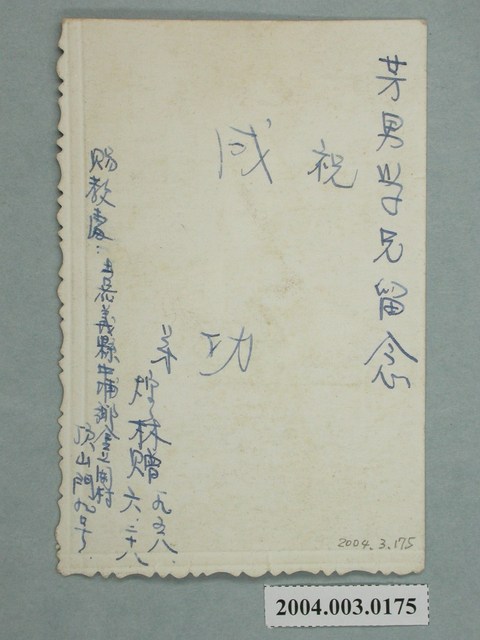 芳男学兄留念
祝
成
功
弟
煌林贈 一九五八.
六.二十八
賜教處：嘉義縣
頂山門九号
2004.3.175
2004.003.0175